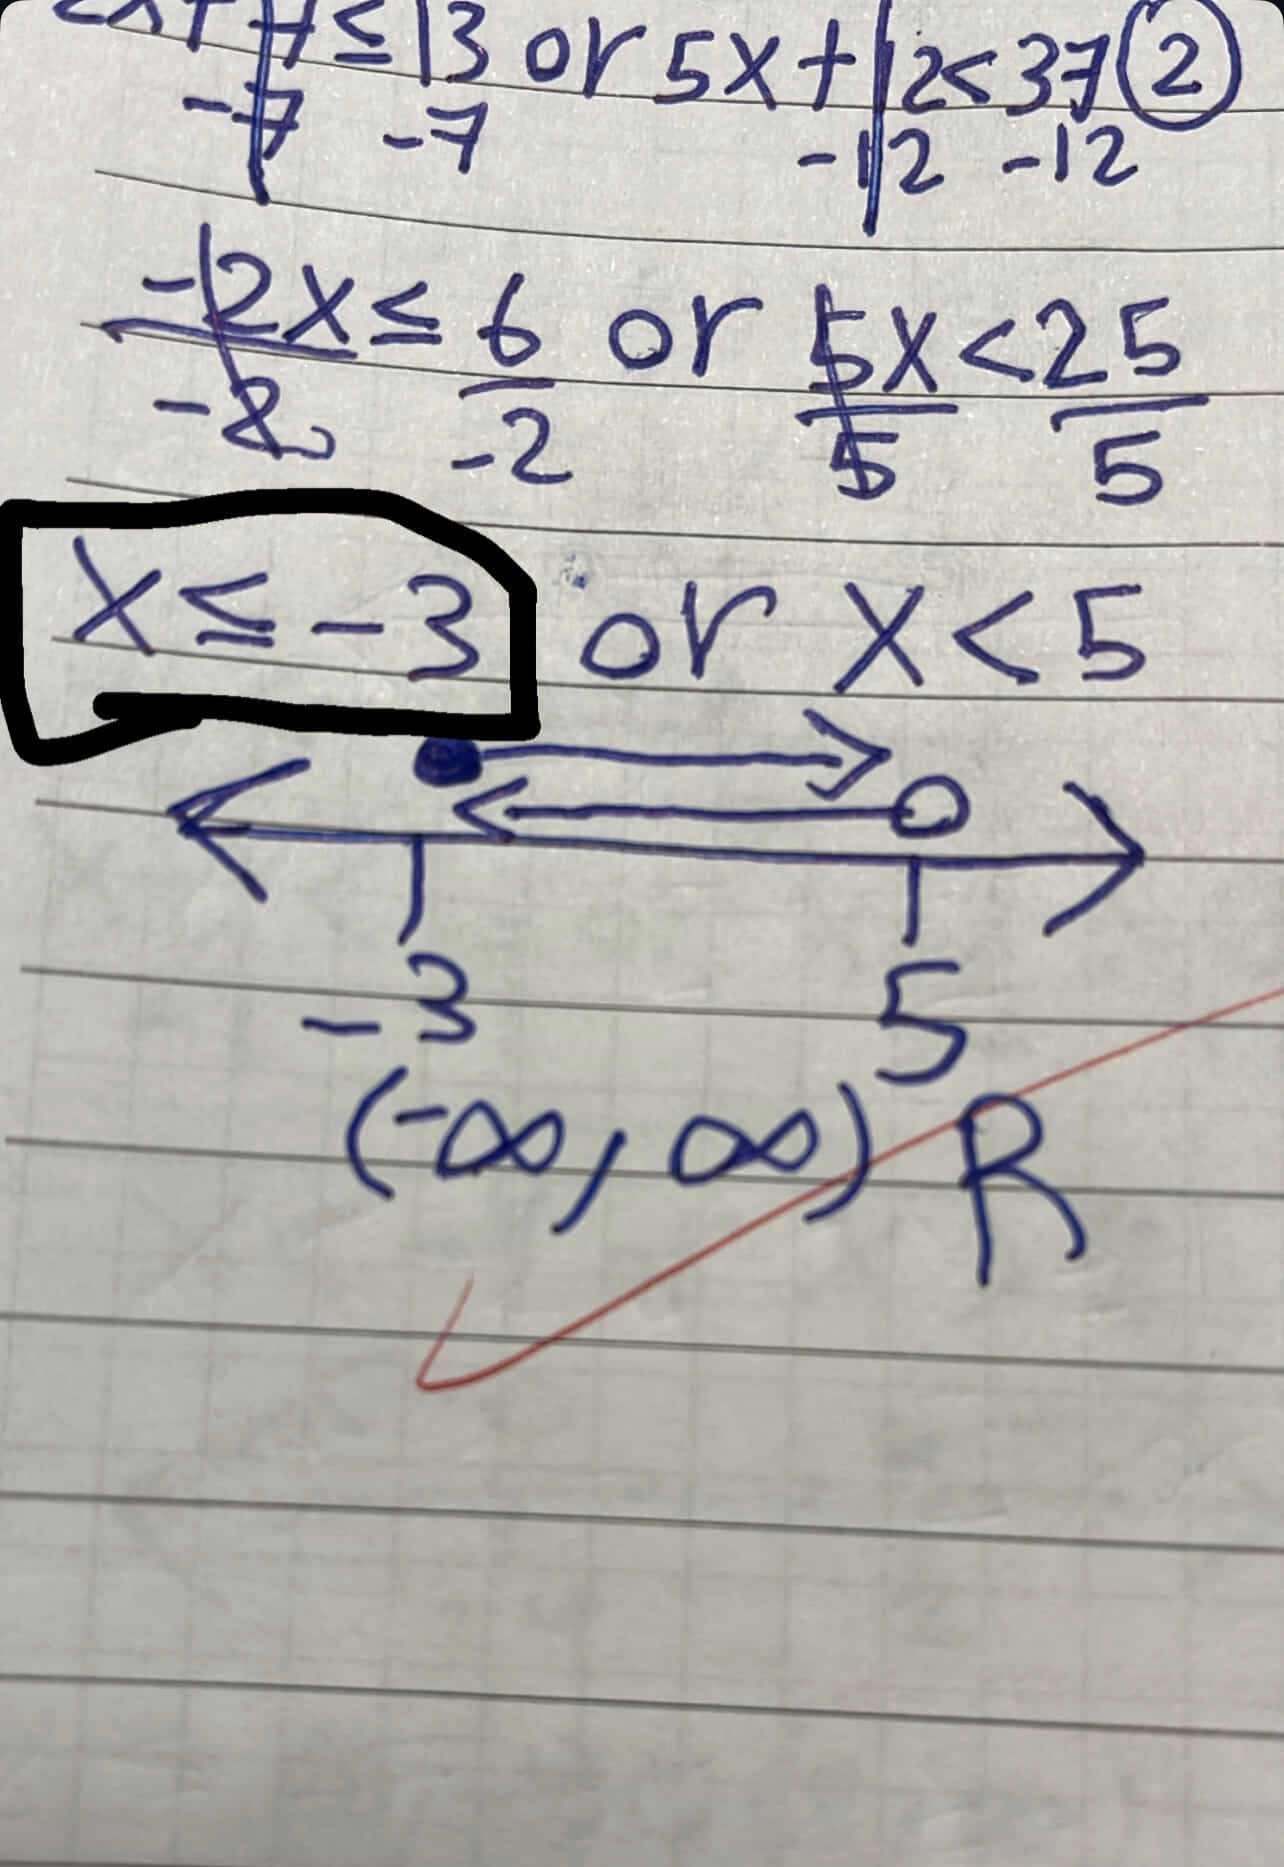 +7≤13 or 5x+12<37 ②
-7 -7 -12 -12
-2x≤6 or 5x<25
-2 -2 5 5
x≤-3 or x<5
-3 5
(-∞,∞) R